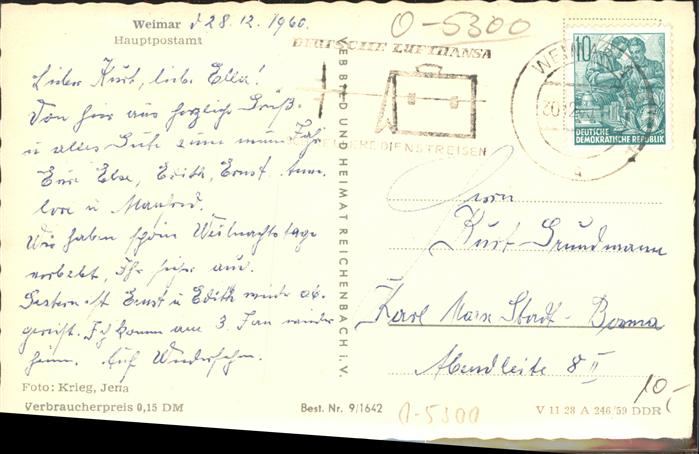 Weimar d 28.12.1960.
Hauptpostamt
0-5300
DEUTSCHE LUFTHANSA
DIENSTREISEN
WEIMAR
10
DEUTSCHE
DEMOKRATISCHE REPUBLIK
Lieber Kurt, liebe Ella!
Von hier aus herzliche Grüße
u alles Gute zum neuen Jahr
Eure Else, Edith, Ernst
lore u Manfred.
Wir haben schöne Weihnachtstage
verlebt, Ihr sicher auch.
Gestern ist Ernst u Edith wieder ab-
gereist. Ich komme am 3. Jan wieder
heim. Auf Wiedersehn.
VEB BILD UND HEIMAT REICHENBACH i. V.
Herrn
Kurt Grundmann
Karl Marx Stadt - Borna
Abendleite 8 II
10,-
Foto: Krieg, Jena
Verbraucherpreis 0,15 DM
Best. Nr. 9/1642
0-5300
V 11 28 A 246/59 DDR